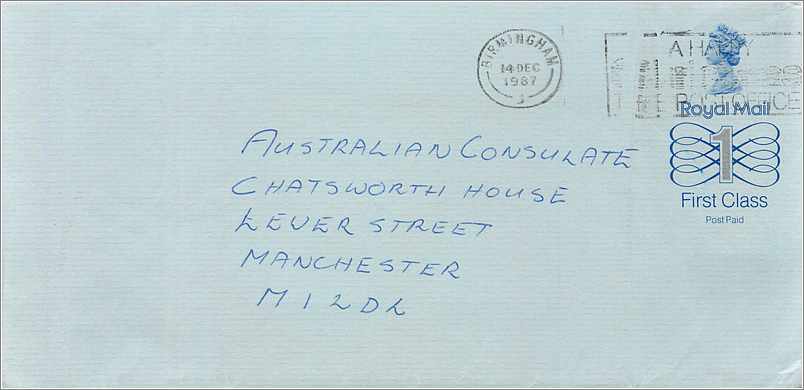 BIRMINGHAM
14 DEC
1987
A HAPPY
POST OFFICE
Royal Mail
1
First Class
Post Paid
AUSTRALIAN CONSULATE
CHATSWORTH HOUSE
LEVER STREET
MANCHESTER
M1 2DL